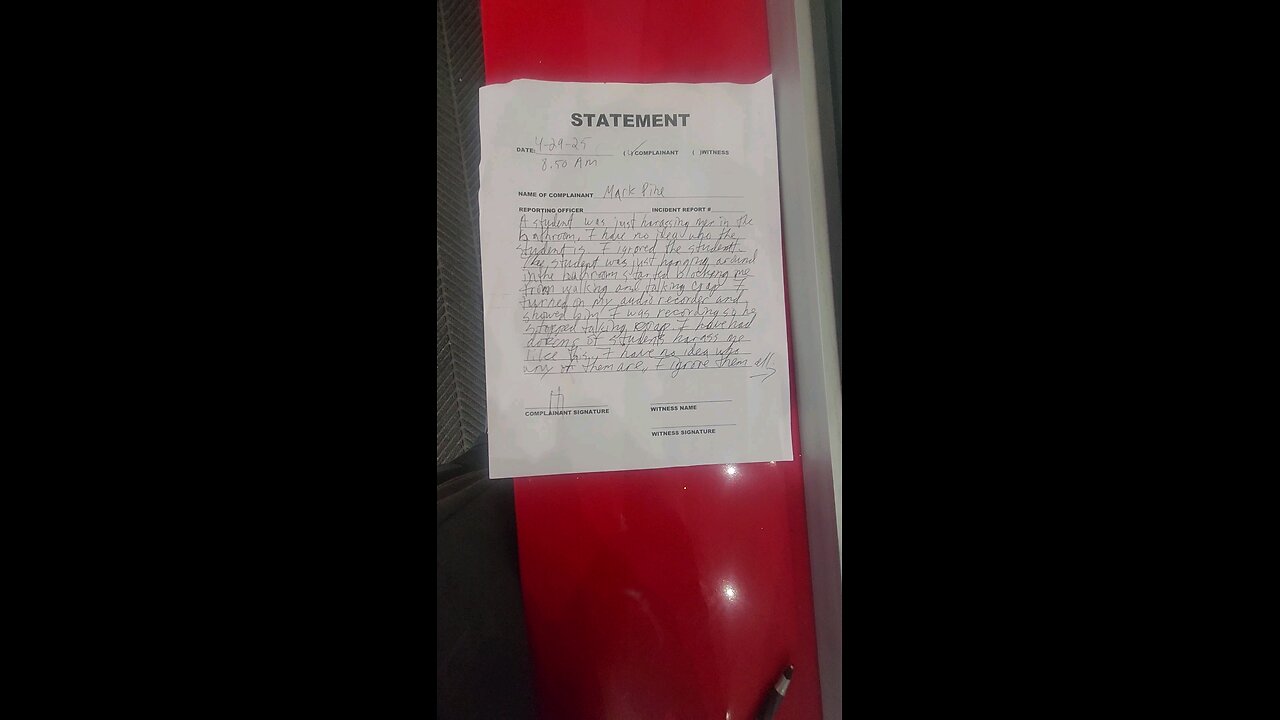 STATEMENT
DATE: 4-29-25 (✓)COMPLAINANT ( )WITNESS
8:50 AM
NAME OF COMPLAINANT Mark Pine
REPORTING OFFICER INCIDENT REPORT #
A student was just harassing me in the
bathroom, I have no idea who the
student is. I ignored the student.
The student was just hanging around
in the bathroom started blocking me
from walking and talking crap. I
turned on my audio recorder and
showed him I was recording so he
stopped talking crap. I have had
dozens of students harass me
like this, I have no idea who
any of them are, I ignore them all.
→
COMPLAINANT SIGNATURE WITNESS NAME
WITNESS SIGNATURE